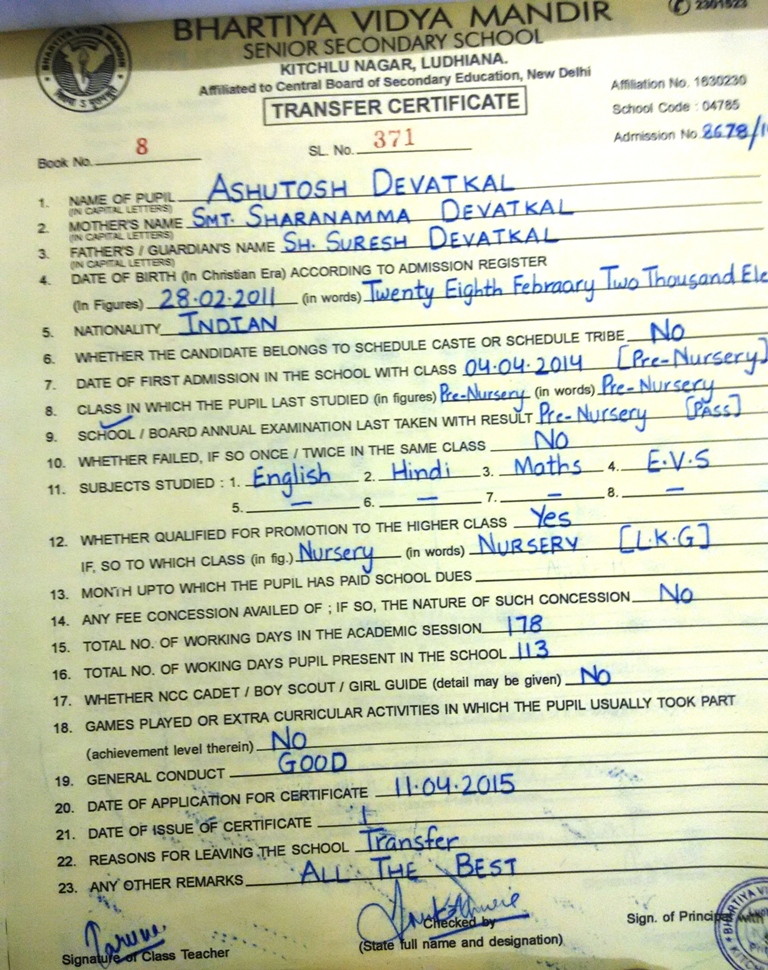 BHARTIYA VIDYA MANDIR
BHARTIYA VIDYA MANDIR
SENIOR SECONDARY SCHOOL
KITCHLU NAGAR, LUDHIANA.
Affiliated to Central Board of Secondary Education, New Delhi
Affiliation No. 1630230
School Code : 04785
TRANSFER CERTIFICATE
Admission No 8678/
Book No. 8 SL. No. 371
1. NAME OF PUPIL ASHUTOSH DEVATKAL
(IN CAPITAL LETTERS)
2. MOTHER'S NAME SMT. SHARANAMMA DEVATKAL
(IN CAPITAL LETTERS)
3. FATHER'S / GUARDIAN'S NAME SH. SURESH DEVATKAL
(IN CAPITAL LETTERS)
4. DATE OF BIRTH (In Christian Era) ACCORDING TO ADMISSION REGISTER
(In Figures) 28.02.2011 (in words) Twenty Eighth Febraary Two Thousand Ele
5. NATIONALITY INDIAN
6. WHETHER THE CANDIDATE BELONGS TO SCHEDULE CASTE OR SCHEDULE TRIBE No
7. DATE OF FIRST ADMISSION IN THE SCHOOL WITH CLASS 04.04.2014 [Pre-Nursery]
8. CLASS IN WHICH THE PUPIL LAST STUDIED (in figures) Pre-Nursery (in words) Pre-Nursery
9. SCHOOL / BOARD ANNUAL EXAMINATION LAST TAKEN WITH RESULT Pre-Nursery [PASS]
10. WHETHER FAILED, IF SO ONCE / TWICE IN THE SAME CLASS No
11. SUBJECTS STUDIED : 1. English 2. Hindi 3. Maths 4. E.V.S
5. — 6. — 7. — 8. —
12. WHETHER QUALIFIED FOR PROMOTION TO THE HIGHER CLASS Yes
IF, SO TO WHICH CLASS (in fig.) Nursery (in words) NURSERY [L.K.G]
13. MONTH UPTO WHICH THE PUPIL HAS PAID SCHOOL DUES
14. ANY FEE CONCESSION AVAILED OF ; IF SO, THE NATURE OF SUCH CONCESSION No
15. TOTAL NO. OF WORKING DAYS IN THE ACADEMIC SESSION 178
16. TOTAL NO. OF WOKING DAYS PUPIL PRESENT IN THE SCHOOL 113
17. WHETHER NCC CADET / BOY SCOUT / GIRL GUIDE (detail may be given) No
18. GAMES PLAYED OR EXTRA CURRICULAR ACTIVITIES IN WHICH THE PUPIL USUALLY TOOK PART
(achievement level therein) No
19. GENERAL CONDUCT GOOD
20. DATE OF APPLICATION FOR CERTIFICATE 11.04.2015
21. DATE OF ISSUE OF CERTIFICATE
22. REASONS FOR LEAVING THE SCHOOL Transfer
23. ANY OTHER REMARKS ALL THE BEST
Signature of Class Teacher
Checked by
(State full name and designation)
Sign. of Principal with